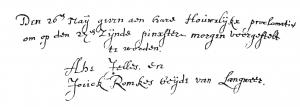 Den 26 Maÿ geven aen hare Houwlijks proclamatie
om op den zijnde pinxster morgen voorgestelt
te worden.
Ahs Jelles, en
Jorick Romkes beÿde van Langweer.